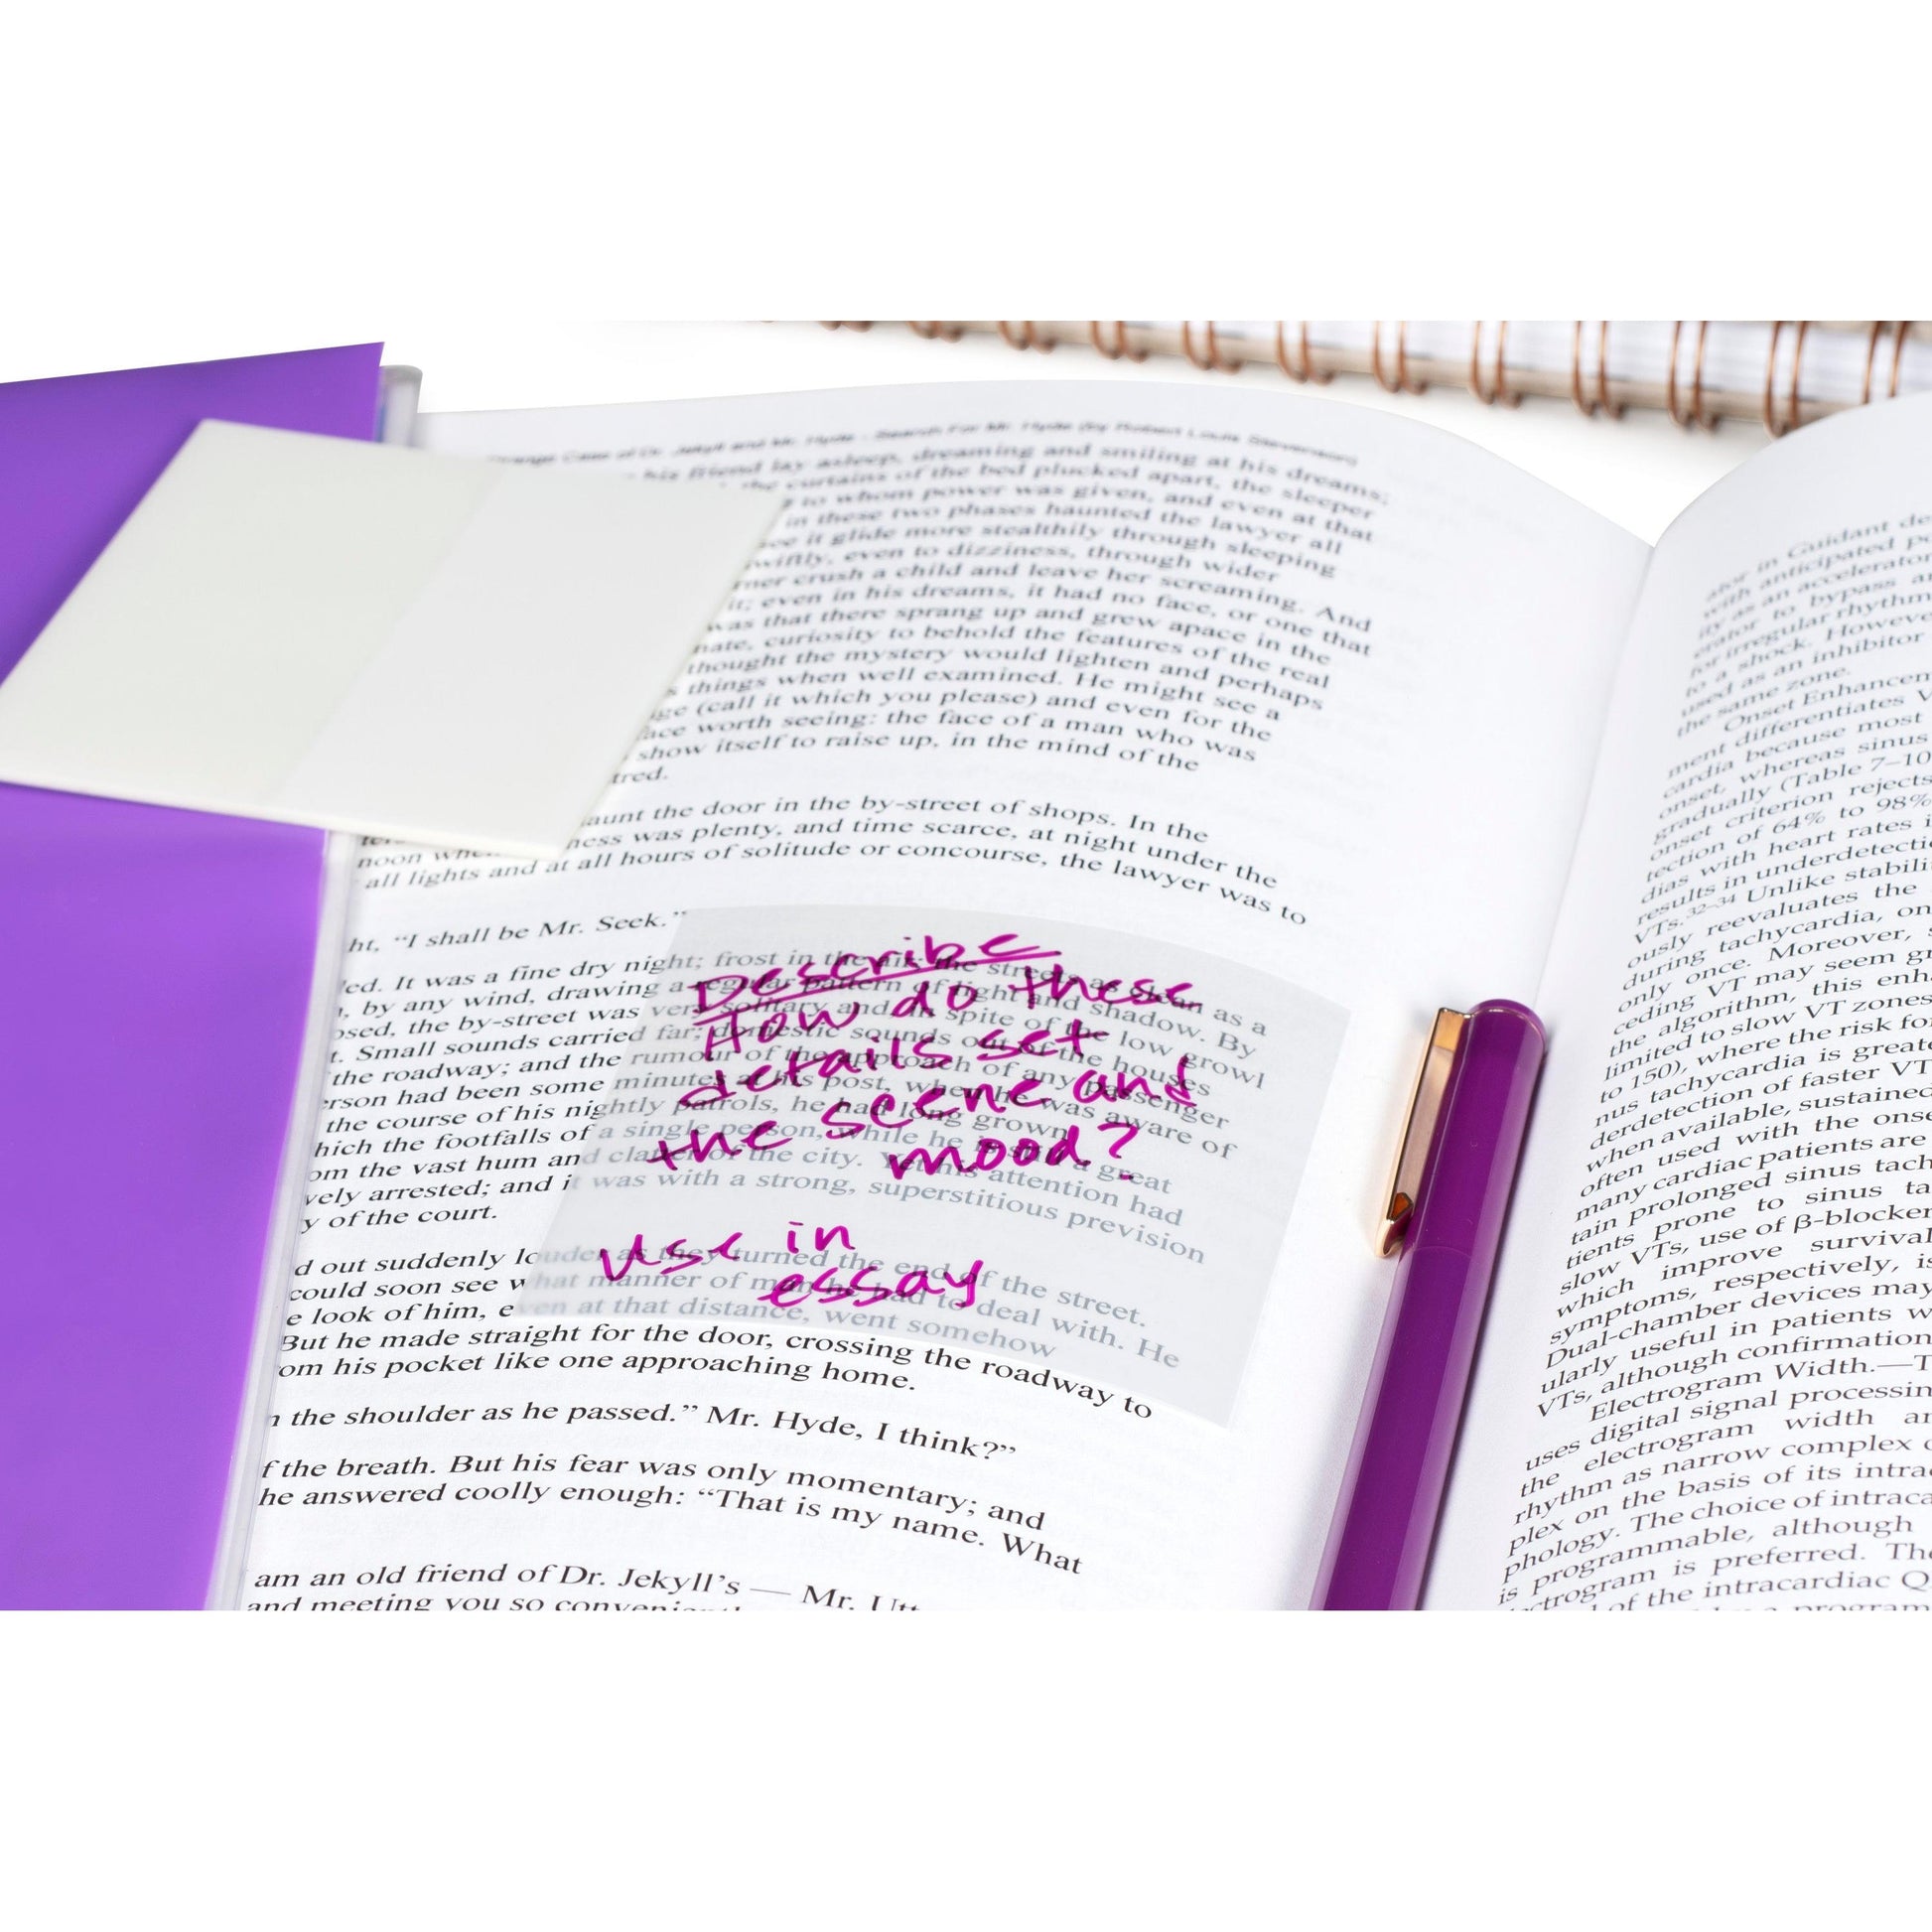 Strange Case of Dr. Jekyll and Mr. Hyde - Search For Mr. Hyde (by Robert Louis Stevenson)
his friend lay asleep, dreaming and smiling at his dreams;
the curtains of the bed plucked apart, the sleeper
to whom power was given, and even at that
in these two phases haunted the lawyer all
see it glide more stealthily through sleeping
wiftly, even to dizziness, through wider
rner crush a child and leave her screaming. And
it; even in his dreams, it had no face, or one that
was that there sprang up and grew apace in the
nate, curiosity to behold the features of the real
thought the mystery would lighten and perhaps
s things when well examined. He might see a
ge (call it which you please) and even for the
ace worth seeing: the face of a man who was
show itself to raise up, in the mind of the
tred.
aunt the door in the by-street of shops. In the
noon when ness was plenty, and time scarce, at night under the
all lights and at all hours of solitude or concourse, the lawyer was to
ht, “I shall be Mr. Seek.”
ed. It was a fine dry night; frost in the air; the streets as clean as a
, by any wind, drawing a regular pattern of light and shadow. By
osed, the by-street was very solitary and in spite of the low growl
t. Small sounds carried far; domestic sounds out of the houses
the roadway; and the rumour of the approach of any passenger
erson had been some minutes at his post, when he was aware of
the course of his nightly patrols, he had long grown
hich the footfalls of a single person, while he is still a great
om the vast hum and clatter of the city. Yet his attention had
vely arrested; and it was with a strong, superstitious prevision
y of the court.
d out suddenly louder as they turned the end of the street.
could soon see what manner of man he had to deal with. He
e look of him, even at that distance, went somehow
But he made straight for the door, crossing the roadway to
om his pocket like one approaching home.
n the shoulder as he passed.” Mr. Hyde, I think?”
f the breath. But his fear was only momentary; and
he answered coolly enough: “That is my name. What
am an old friend of Dr. Jekyll’s — Mr. Utt
and meeting you so convenient
Describe
How do these
details set
the scene and
mood?
use in
essay
ator in Guidant de
with anticipated
ity as an accelerator
erator to bypass
for irregular rhythm
to a shock. Howeve
used as an inhibitor
the same zone.
Onset Enhancem
ment differentiates V
cardia because most
onset, whereas sinus
gradually (Table 7–10
onset criterion rejects
tection of 64% to 98%
dias with heart rates i
results in underdetecti
VTs.32–34 Unlike stabili
ously reevaluates the
during tachycardia, on
only once. Moreover,
ceding VT may seem gr
the algorithm, this enh
limited to slow VT zones
to 150), where the risk for
nus tachycardia is greate
derdetection of faster VT
when available, sustained
often used with the onse
many cardiac patients are
tain prolonged sinus tach
tients prone to sinus ta
slow VTs, use of β-blocker
which improve survival
symptoms, respectively, is
Dual-chamber devices may
ularly useful in patients w
VTs, although confirmation
Electrogram Width.—T
uses digital signal processin
the electrogram width an
rhythm as narrow complex o
plex on the basis of its intra
phology. The choice of intraca
is programmable, although
ectrogram is preferred. The
of the intracardiac Q
program